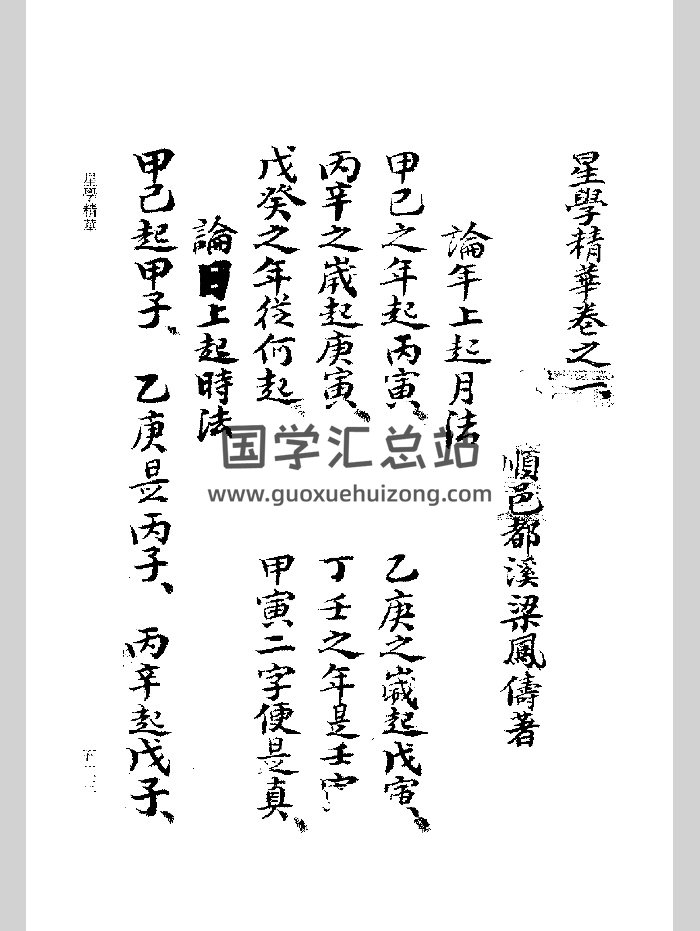 星學精華卷之一、
順邑都溪梁鳳儔著
論年上起月法
甲己之年起丙寅、 乙庚之歲起戊寅、
丙辛之歲起庚寅、 丁壬之年是壬寅
戊癸之年從何起、 甲寅二字便是真、
論日上起時法
甲己起甲子、 乙庚是丙子、 丙辛起戊子、
星學精華
国学汇总站
www.guoxuehuizong.com